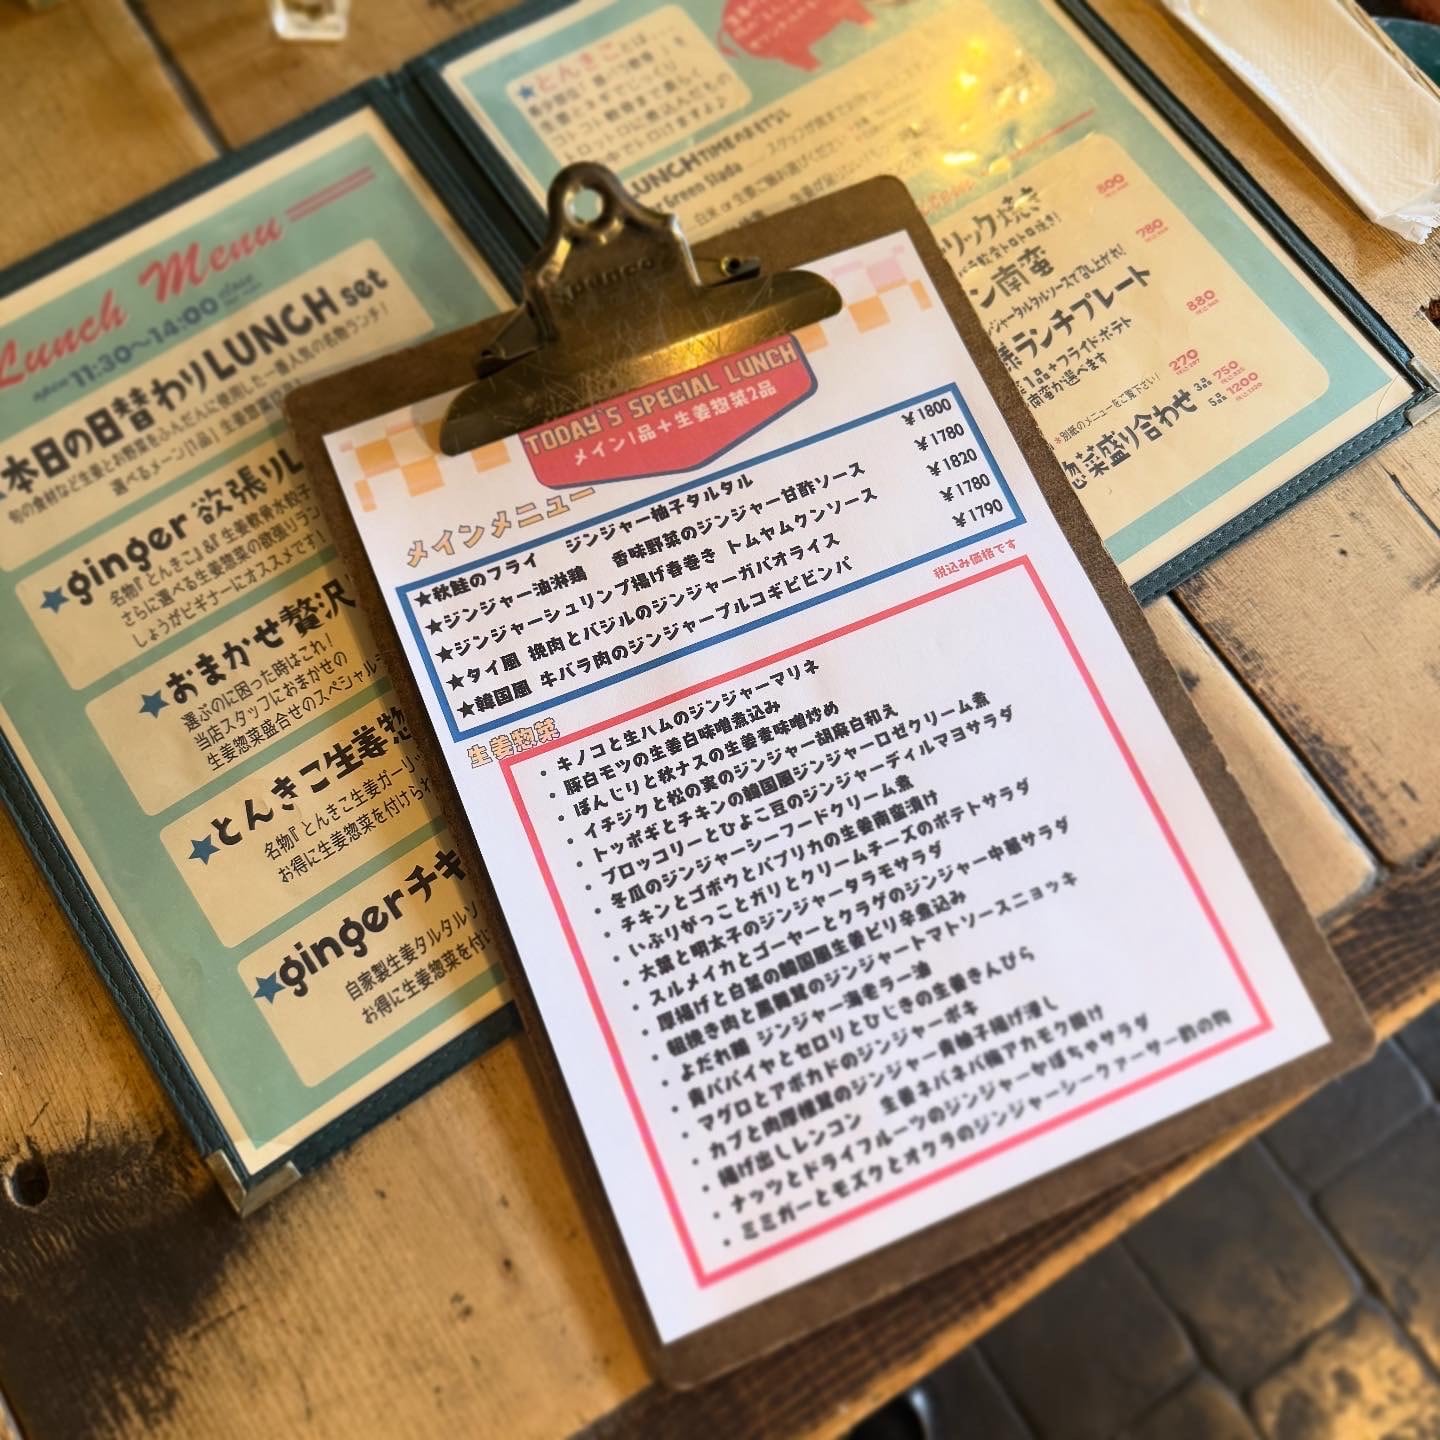 Lunch Menu
open 11:30～14:00 close
本日の日替わりLUNCH set
旬の食材など生姜とお野菜をふんだんに使用した一番人気の名物ランチ！
選べるメーン[1品]
★ginger欲張りL
名物『とんきこ』&『生姜軟骨水餃子
さらに選べる生姜惣菜の欲張りラン
しょうがビギナーにオススメです！
★おまかせ贅沢
選ぶのに困った時はこれ！
当店スタッフにおまかせの
生姜惣菜盛合せのスペシャル
★とんきこ生姜惣
名物『とんきこ生姜ガーリッ
お得に生姜惣菜を付けられ
★gingerチキ
自家製生姜タルタルソ
お得に生姜惣菜を付け
★とんきことは…
生姜とネギでじっくり
コトコト軟骨まで柔らかく
トロットロに煮込んだもの
口の中でトロけますよ♪
LUNCH TIMEのおもてなし
r Green Slada
リック焼き 800
バラ軟骨トロトロ焼き！
ン南蛮 780
ンジャータルタルソースで召し上がれ！
様ランチプレート 880
1品+フライドポテト
南蛮が選べます
270
＊別紙のメニューをご覧下さい！
惣菜盛り合わせ 3品 750
5品 1200
TODAY'S SPECIAL LUNCH
メイン1品＋生姜惣菜2品
メインメニュー
★秋鮭のフライ ジンジャー柚子タルタル ￥1800
★ジンジャー油淋鶏 香味野菜のジンジャー甘酢ソース ￥1780
★ジンジャーシュリンプ揚げ春巻き トムヤムクンソース ￥1820
★タイ風 挽肉とバジルのジンジャーガパオライス ￥1780
★韓国風 牛バラ肉のジンジャープルコギビビンバ ￥1790
税込み価格です
生姜惣菜
・キノコと生ハムのジンジャーマリネ
・豚白モツの生姜白味噌煮込み
・ぼんじりと秋ナスの生姜麦味噌炒め
・イチジクと松の実のジンジャー胡麻白和え
・トッポギとチキンの韓国風ジンジャーロゼクリーム煮
・ブロッコリーとひよこ豆のジンジャーディルマヨサラダ
・冬瓜のジンジャーシーフードクリーム煮
・チキンとゴボウとパプリカの生姜南蛮漬け
・いぶりがっことガリとクリームチーズのポテトサラダ
・大葉と明太子のジンジャータラモサラダ
・スルメイカとゴーヤーとクラゲのジンジャー中華サラダ
・厚揚げと白菜の韓国風生姜ピリ辛煮込み
・粗挽き肉と黒舞茸のジンジャートマトソースニョッキ
・よだれ鶏 ジンジャー海老ラー油
・青パパイヤとセロリとひじきの生姜きんぴら
・マグロとアボカドのジンジャーポキ
・カブと肉厚椎茸のジンジャー青柚子揚げ浸し
・揚げ出しレンコン 生姜ネバネバ梅アカモク掛け
・ナッツとドライフルーツのジンジャーかぼちゃサラダ
・ミミガーとモズクとオクラのジンジャーシークァーサー酢の物